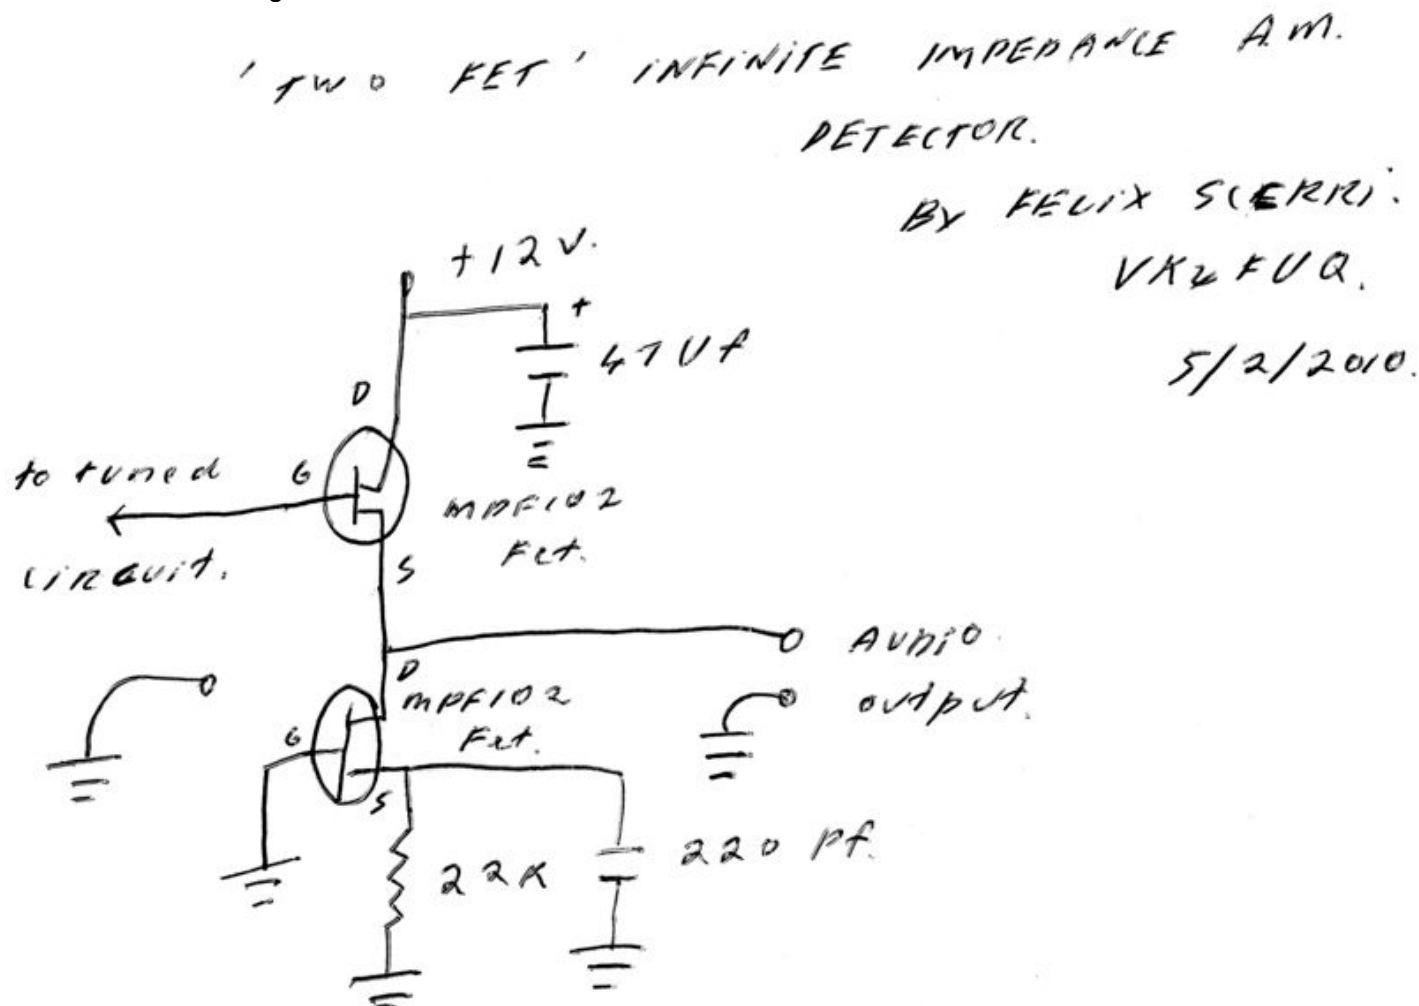 'TWO FET' INFINITE IMPEDANCE A.M.
DETECTOR.
BY FELIX SCERRI.
VK4FUQ.
5/2/2010.
+12V.
+
47Uf
D
to tuned
G
MPF102
Fet.
circuit.
S
Audio
output.
D
MPF102
Fet.
G
S
22K
220 Pf.